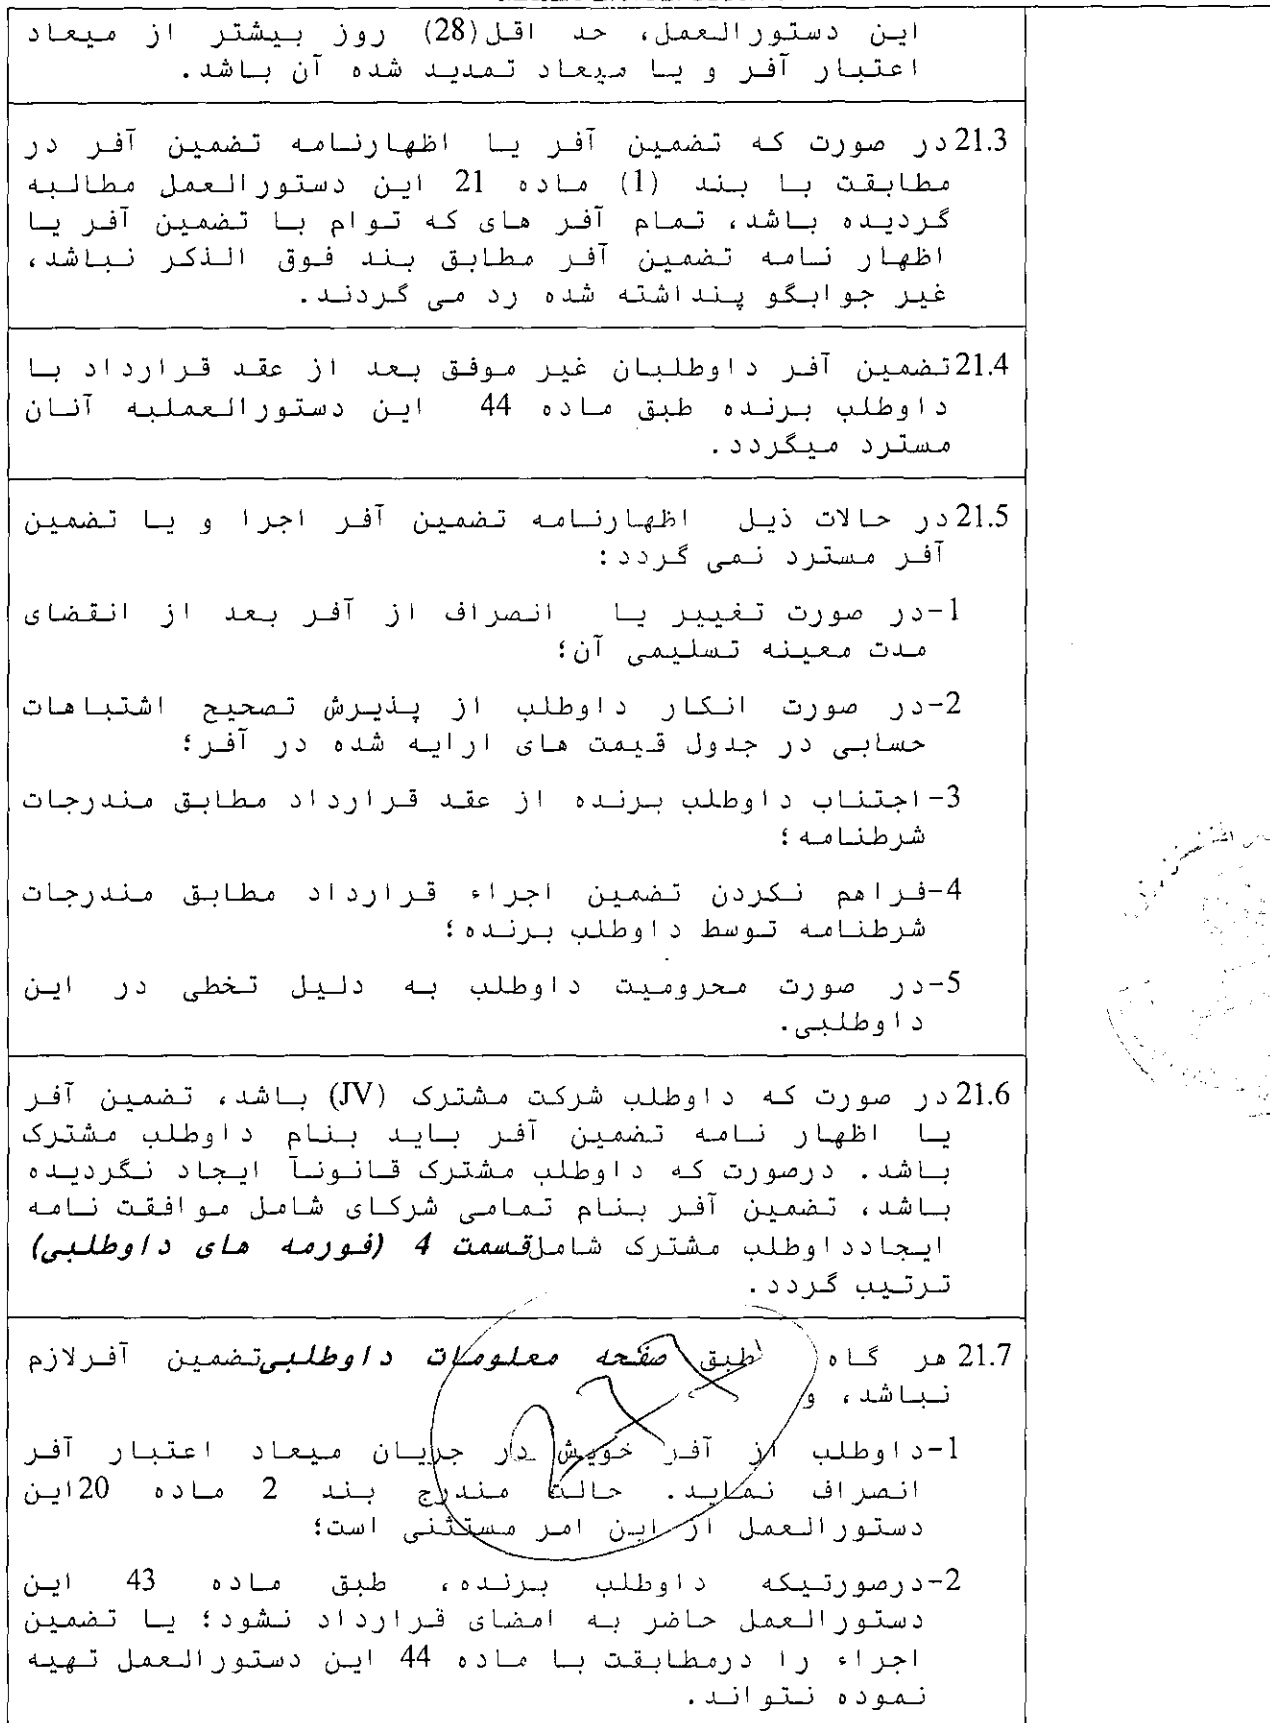 این دستورالعمل، حد اقل(28) روز بیشتر از میعاد
اعتبار آفر و یا میعاد تمدید شده آن باشد.
21.3 در صورت که تضمین آفر یا اظهارنامه تضمین آفر در
مطابقت با بند (1) ماده 21 این دستورالعمل مطالبه
گردیده باشد، تمام آفر های که توام با تضمین آفر یا
اظهار نامه تضمین آفر مطابق بند فوق الذکر نباشد،
غیر جوابگو پنداشته شده رد می گردند.
21.4 تضمین آفر داوطلبان غیر موفق بعد از عقد قرارداد با
داوطلب برنده طبق ماده 44 این دستورالعملبه آنان
مسترد میگردد.
21.5 در حالات ذیل اظهارنامه تضمین آفر اجرا و یا تضمین
آفر مسترد نمی گردد:
1-در صورت تغییر یا انصراف از آفر بعد از انقضای
مدت معینه تسلیمی آن؛
2-در صورت انکار داوطلب از پذیرش تصحیح اشتباهات
حسابی در جدول قیمت های ارایه شده در آفر؛
3-اجتناب داوطلب برنده از عقد قرارداد مطابق مندرجات
شرطنامه؛
4-فراهم نکردن تضمین اجراء قرارداد مطابق مندرجات
شرطنامه توسط داوطلب برنده؛
5-در صورت محرومیت داوطلب به دلیل تخطی در این
داوطلبی.
21.6 در صورت که داوطلب شرکت مشترک (JV) باشد، تضمین آفر
یا اظهار نامه تضمین آفر باید بنام داوطلب مشترک
باشد. درصورت که داوطلب مشترک قانوناً ایجاد نگردیده
باشد، تضمین آفر بنام تمامی شرکای شامل موافقت نامه
ایجادداوطلب مشترک شاملقسمت 4 (فورمه های داوطلبی)
ترتیب گردد.
21.7 هر گاه طبق صفحه معلومات داوطلبیتضمین آفرلازم
نباشد، و
1-داوطلب از آفر خویش در جریان میعاد اعتبار آفر
انصراف نماید. حالت مندرج بند 2 ماده 20این
دستورالعمل از این امر مستثنی است؛
2-درصورتیکه داوطلب برنده، طبق ماده 43 این
دستورالعمل حاضر به امضای قرارداد نشود؛ یا تضمین
اجراء را درمطابقت با ماده 44 این دستورالعمل تهیه
نموده نتواند.